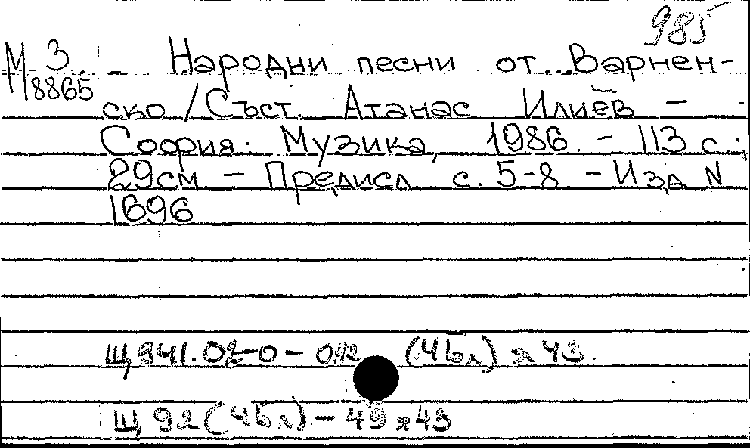 985
М 3
8865
Народни песни от Варнен-
ско / Съст. Атанас Илиев –
София: Музика, 1986. – 113 с.;
29см – Предисл. с. 5-8 – Изд. N
1696
(4Бл) я 43.
Щ 92 (4Бл) – 49 я 43